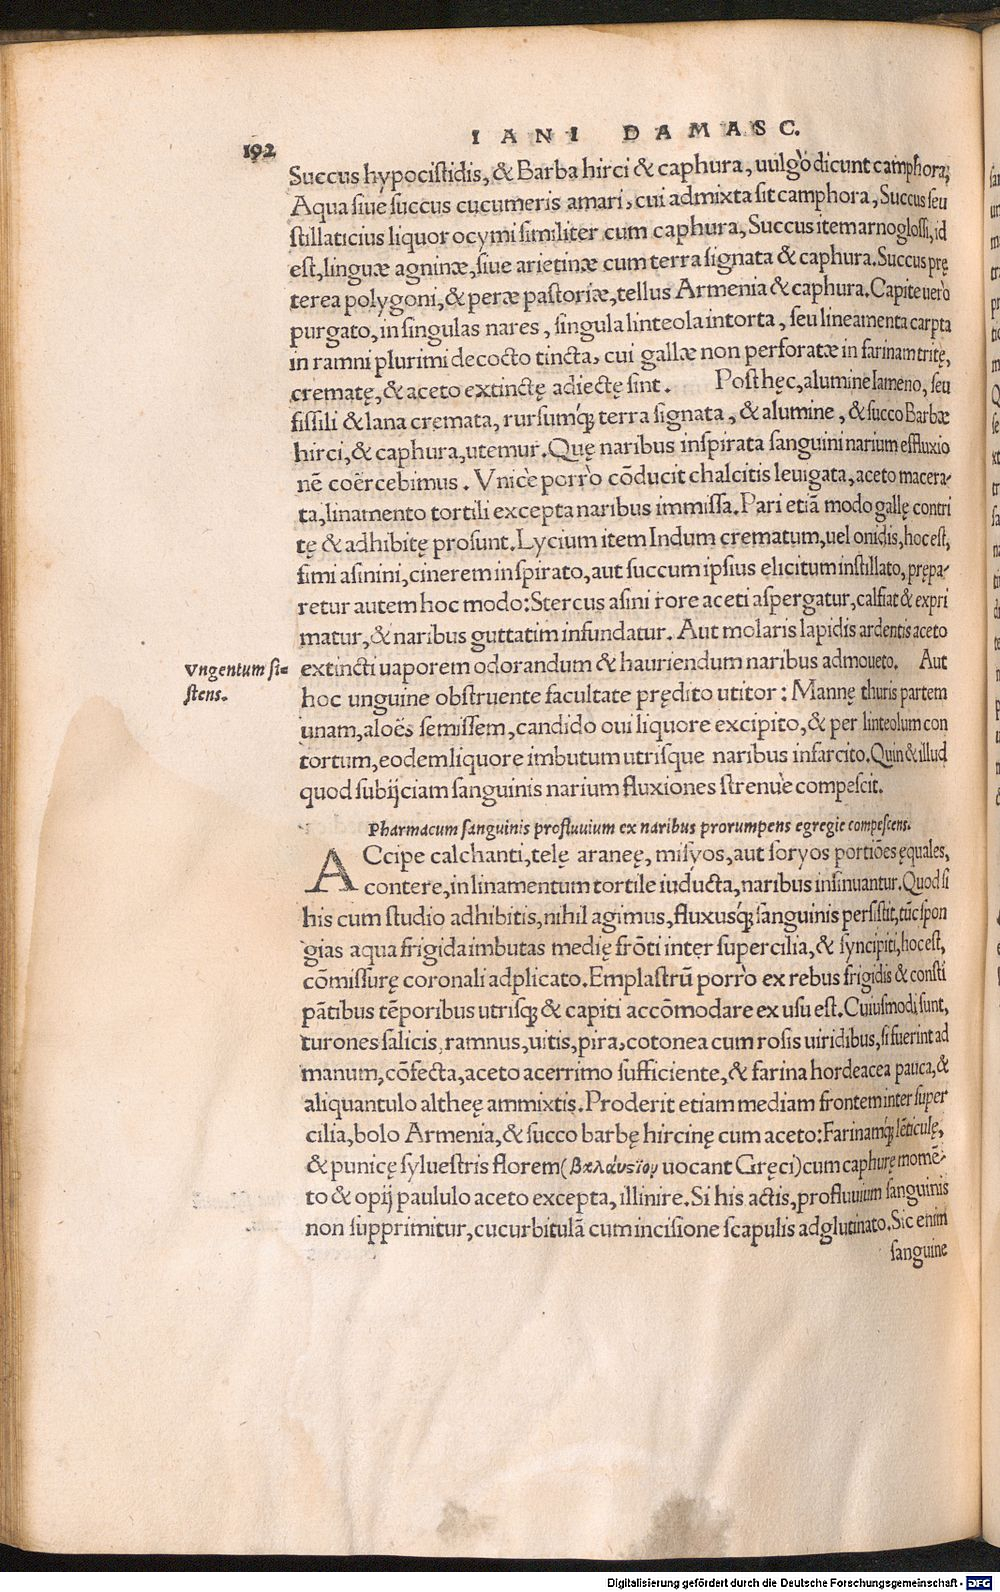 192
IANI DAMASC.
Succus hypocistidis, & Barba hirci & caphura, uulgò dicunt camphora,
Aqua siue succus cucumeris amari, cui admixta sit camphora, Succus seu
stillaticius liquor ocymi similiter cum caphura, Succus item arnoglossi, id
est, linguæ agninæ, siue arietinæ cum terra signata & caphura. Succus prę
terea polygoni, & peræ pastoriæ, tellus Armenia & caphura. Capite uerò
purgato, in singulas nares, singula linteola intorta, seu lineamenta carpta
in ramni plurimi decocto tincta, cui gallæ non perforatæ in farinam tritę,
crematę, & aceto extinctę adiectę sint. Post hęc, alumine Iameno, seu
fissili & lana cremata, rursumq́ue terra signata, & alumine, & succo Barbæ
hirci, & caphura, utemur. Quę naribus inspirata sanguini narium effluxio
nē coërcebimus. Vnicè porrò cōducit chalcitis leuigata, aceto macera-
ta, linamento tortili excepta naribus immissa. Pari etiā modo gallę contri
tę & adhibitę prosunt. Lycium item Indum crematum, uel onidis, hoc est,
fimi asinini, cinerem inspirato, aut succum ipsius elicitum instillato, prępa-
retur autem hoc modo: Stercus asini rore aceti aspergatur, calfiat & expri
matur, & naribus guttatim infundatur. Aut molaris lapidis ardentis aceto
extincti uaporem odorandum & hauriendum naribus admoueto. Aut
Vngentum si-
stens.
hoc unguine obstruente facultate prędito utitor: Mannę thuris partem
unam, aloës semissem, candido oui liquore excipito, & per linteolum con
tortum, eodem liquore imbutum utrisque naribus infarcito. Quin & illud
quod subijciam sanguinis narium fluxiones strenuè compescit.
Pharmacum sanguinis profluuium ex naribus prorumpens egregie compescens.
ACcipe calchanti, telę araneę, misyos, aut soryos portiões ęquales,
contere, in linamentum tortile iuducta, naribus insinuantur. Quod si
his cum studio adhibitis, nihil agimus, fluxusq́ue sanguinis persistit, tūc spon
gias aqua frigida imbutas medię frōti inter supercilia, & syncipiti, hoc est,
cōmissurę coronali adplicato. Emplastrū porrò ex rebus frigidis & consti
pātibus tēporibus utrisque & capiti accōmodare ex usu est. Cuiusmodi sunt,
turones salicis, ramnus, uitis, pira, cotonea cum rosis uiridibus, si fuerint ad
manum, cōfecta, aceto acerrimo sufficiente, & farina hordeacea pauca, &
aliquantulo altheę ammixtis. Proderit etiam mediam frontem inter super
cilia, bolo Armenia, & succo barbę hircinę cum aceto: Farinamq́ue lēticulę,
& punicę syluestris florem (βαλάυςϊον uocant Gręci) cum caphurę momē-
to & opij paululo aceto excepta, illinire. Si his actis, profluuium sanguinis
non supprimitur, cucurbitulā cum incisione scapulis adglutinato. Sic enim
sanguine
Digitalisierung gefördert durch die Deutsche Forschungsgemeinschaft - DFG